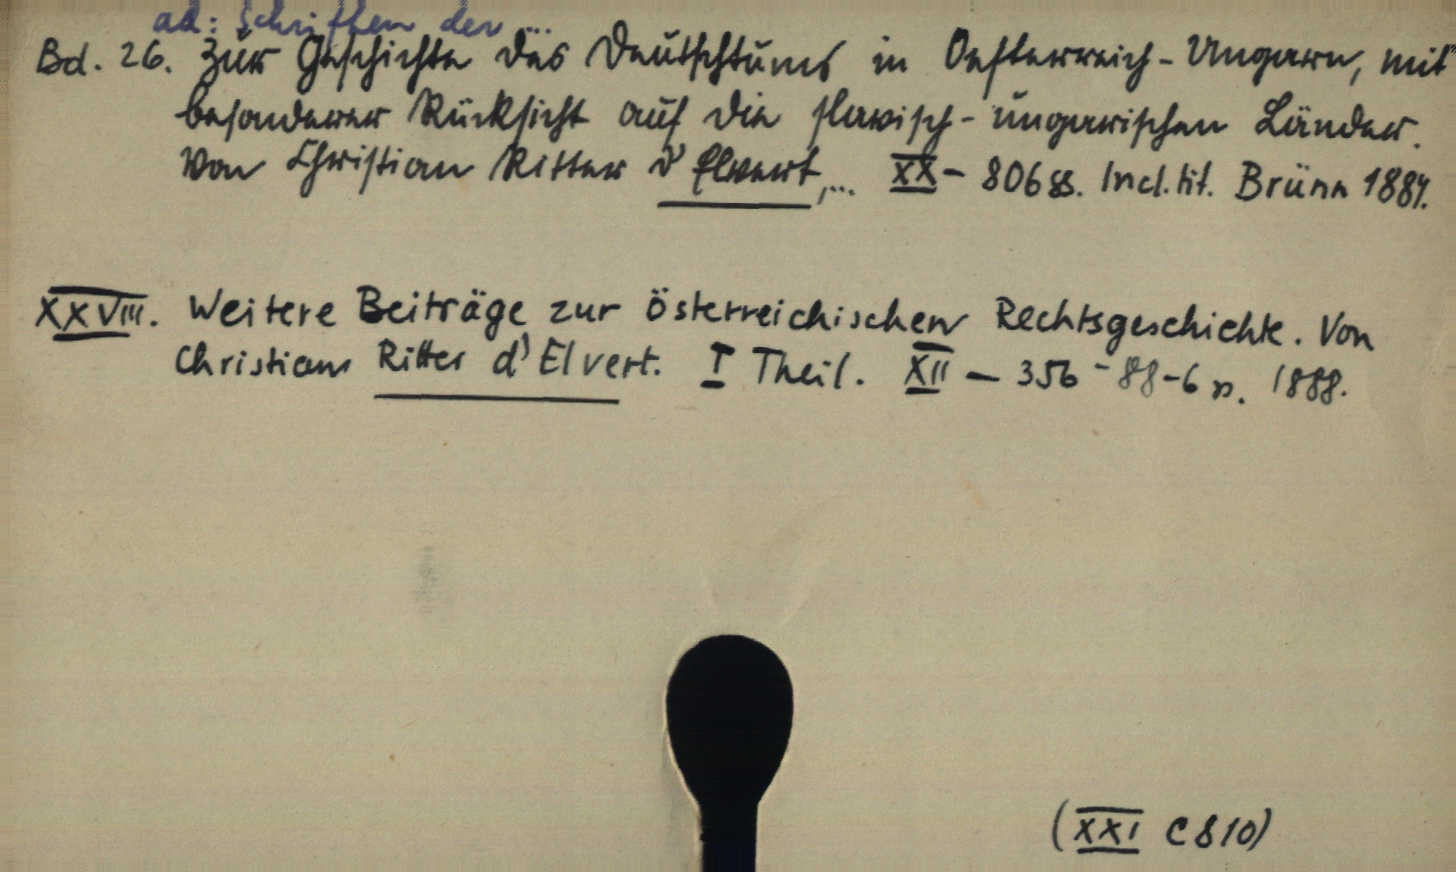 ad: Schriften der ...
Bd. 26. Zur Geschichte des Deutschtums in Oesterreich-Ungarn, mit
besonderer Rücksicht auf die slavisch-ungarischen Länder.
Von Christian Ritter d'Elvert,... XX- 806 SS. Incl. tit. Brünn 1884.
XXVIII. Weitere Beiträge zur österreichischen Rechtsgeschichte. Von
Christian Ritter d'Elvert. I Theil. XII - 356 - 88-6 p. 1888.
(XXI C 810)